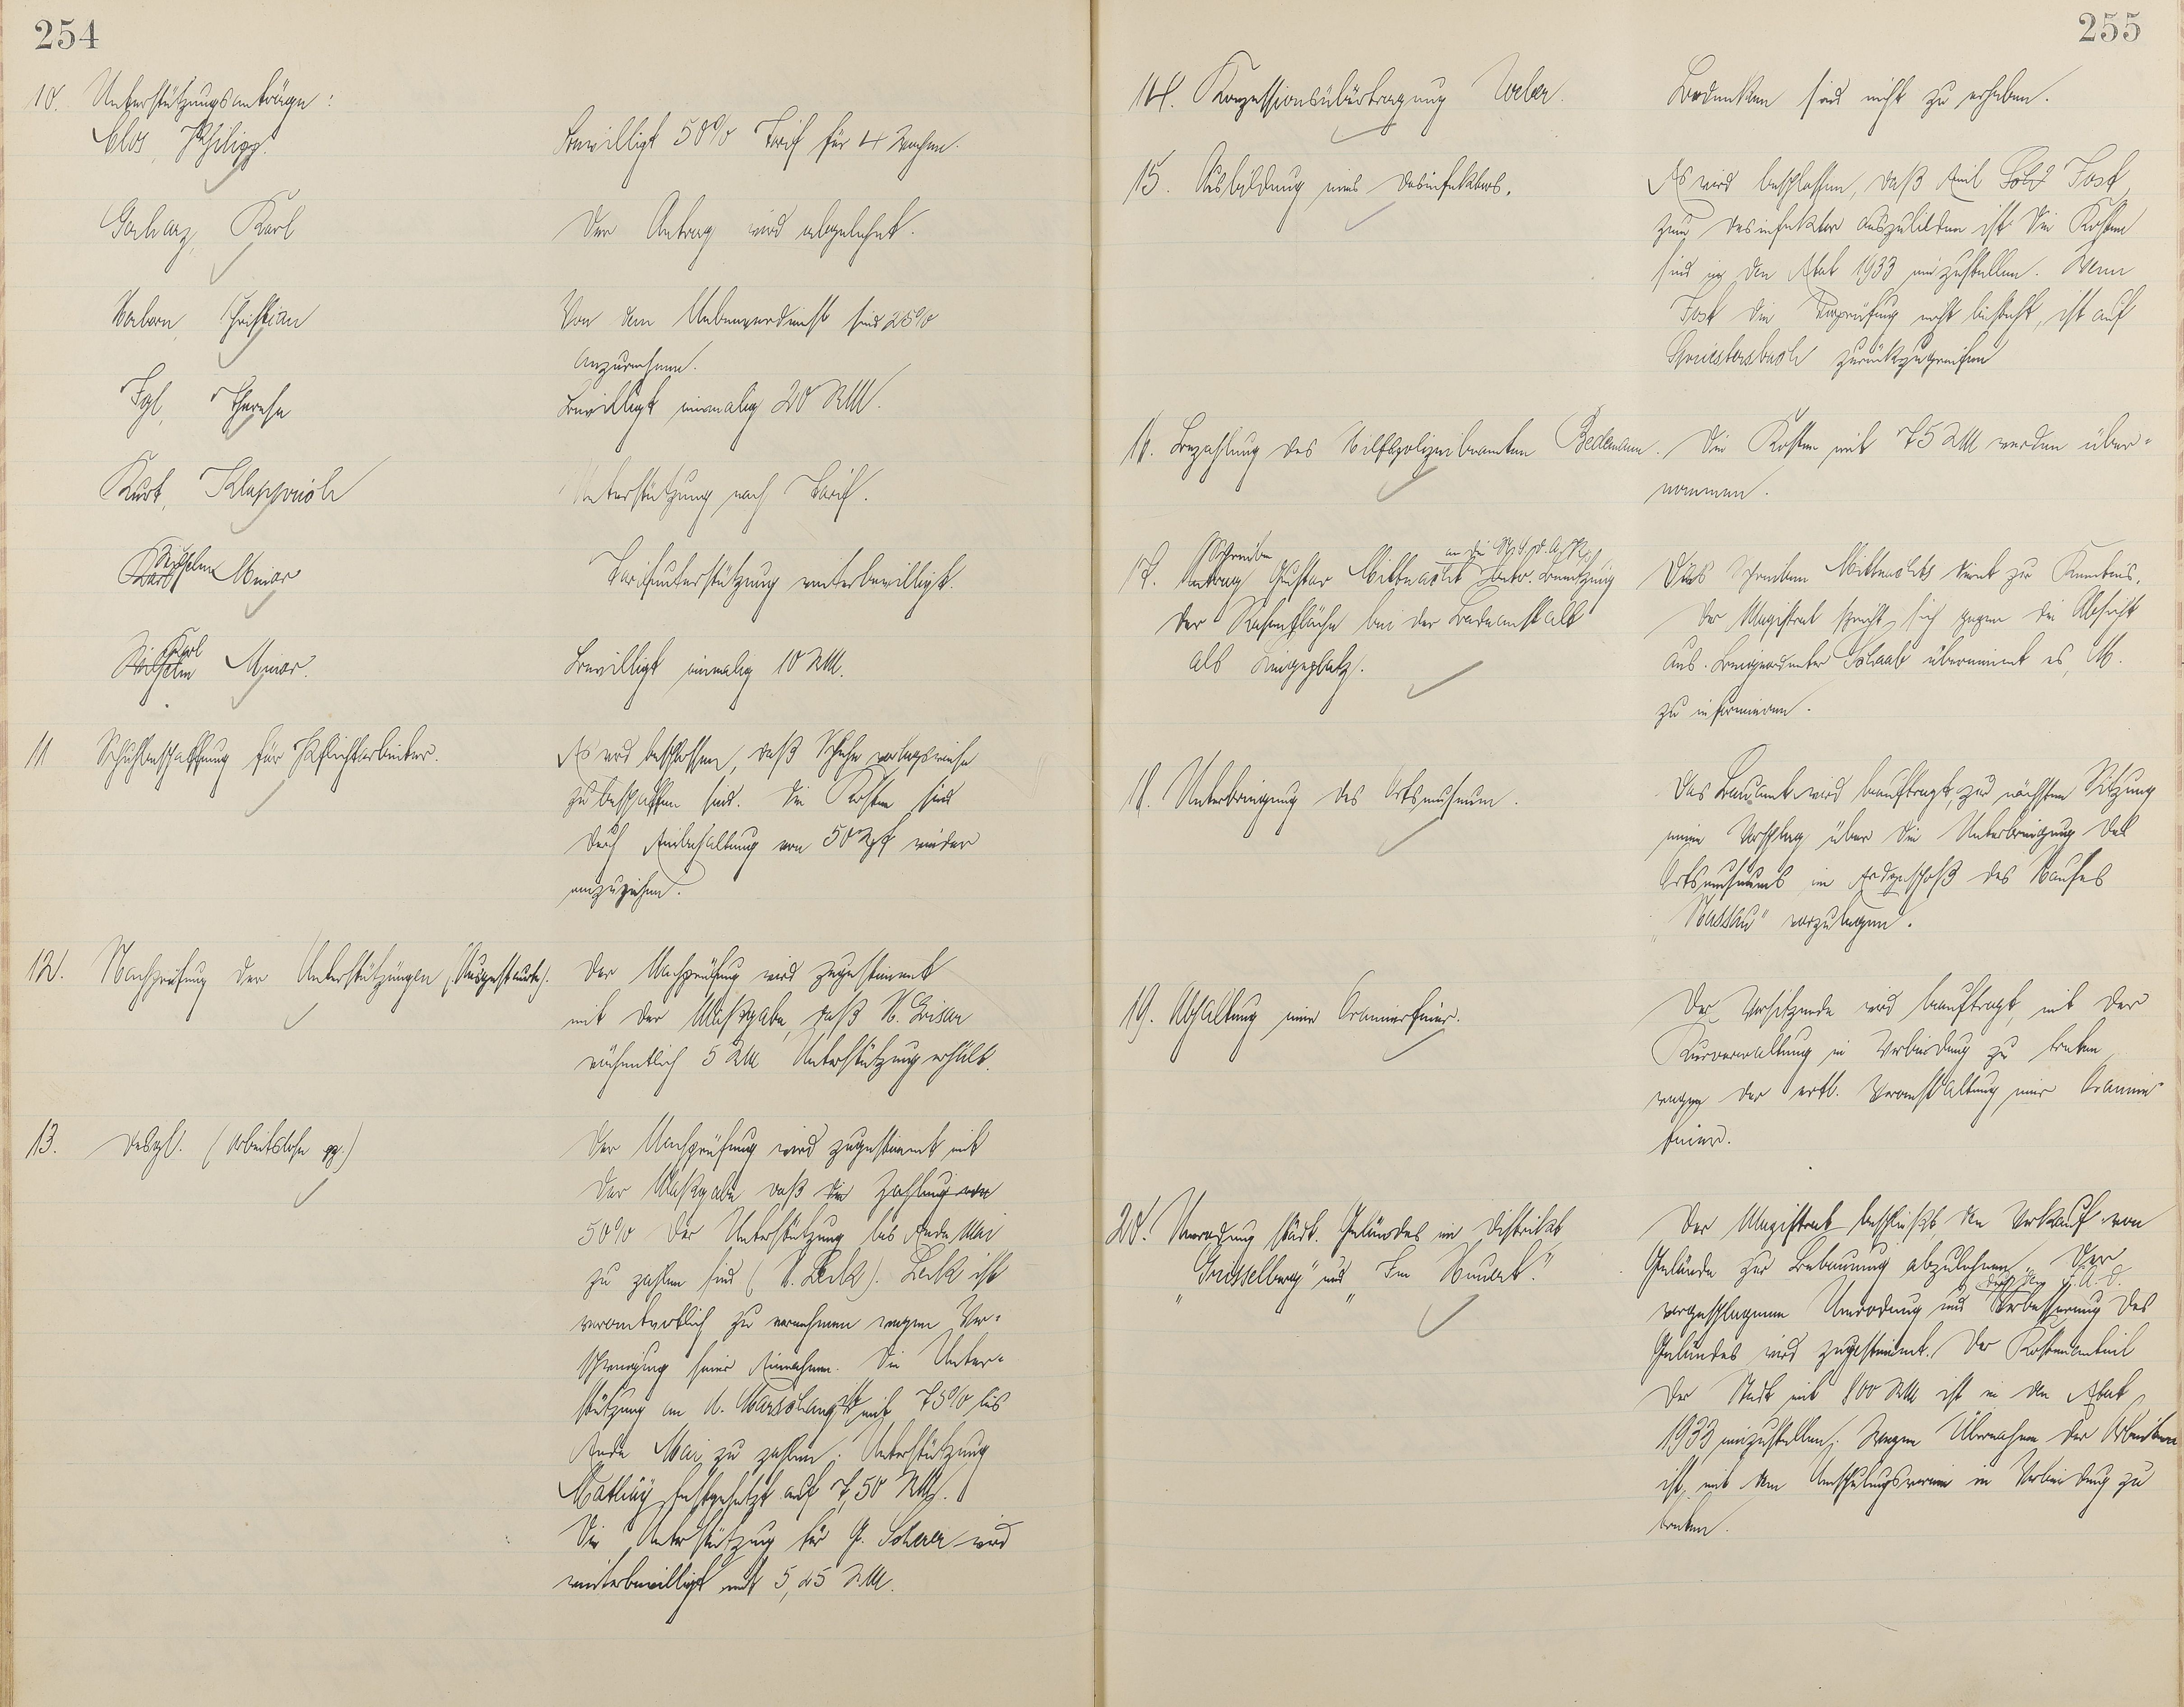 254
10. Unterstützungsanträge:
Clos, Philipp.
Bewilligt 50% Tarif für 4 Wochen.
Gerharz, Karl
Der Antrag wird abgelehnt.
Verborn, Christian
Von dem Nebenverdienst sind 25%
anzurechnen.
Igl, Therese
Bewilligt einmalig 20 RM.
Kurt, Klapprich
Unterstützung nach Tarif.
Karl Wilhelm Minor
Tarifunterstützung weiterbewilligt.
Wilhelm Karl Minor.
Bewilligt einmalig 10 RM.
11 Schuhbeschaffung für Pflichtarbeiter.
Es wird beschlossen, daß Schuhe
zu beschaffen sind. Die Kosten sind
durch Einbehaltung von 50 Rpf wieder
einzuziehen.
12. Nachprüfung der Unterstützungen (Ausgesteuerte).
Der Nachprüfung wird zugestimmt
mit der Maßgabe, daß W. Grisar
wöchentlich 5 RM Unterstützung erhält.
13. desgl. (Arbeitslose pp.)
Der Nachprüfung wird zugestimmt mit
der Maßgabe daß die Zahlung von
50% der Unterstützung bis Ende Mai
zu zahlen sind (W. Beck). Beck ist
verantwortlich zu vernehmen wegen Ver-
schweigung seiner Einnahmen. Die Unter-
stützung an A. Marschang ist mit 75% bis
Ende Mai zu zahlen. Unterstützung
Mathüy festgesetzt auf 7,50 RM.
Die Unterstützung für G. Scherer wird
weiterbewilligt mit 5,25 RM.
255
14. Konzessionsübertragung Weber.
Bedenken sind nicht zu erheben.
15. Ausbildung eines Desinfektors.
Es wird beschlossen, daß Emil Jost
zum Desinfektor auszubilden ist. Die Kosten
sind in den Etat 1933 einzustellen. Wenn
Jost die Vorprüfung nicht besteht, ist auf
zurückzugreifen
16. Bezahlung des Hilfspolizeibeamten Bedemann.
Die Kosten mit 75 RM werden über-
nommen.
17. Antrag Schreiben Gustav Mittnacht an die betr. Benutzung
der Rasenfläche bei der Badeanstalt
als Liegeplatz.
Das Schreiben Mittnachts dient zur Kenntnis.
Der Magistrat spricht sich gegen die Absicht
aus. Beigeordneter Schaab übernimmt es, M.
zu informieren.
18. Unterbringung des Ortsmuseum.
Das Bauamt wird beauftragt, zur nächsten Sitzung
einen Vorschlag über die Unterbringung des
Ortsmuseums im Erdgeschoß des Hauses
"Nassau" vorzulegen.
19. Abhaltung einer Oranierfeier.
Der Vorsitzende wird beauftragt, mit der
Kurverwaltung in Verbindung zu treten
wegen der evtl. Veranstaltung einer Oranier-
feier.
20. Umrodung städt. Geländes im Distrikt
"Grisselberg" und "Im
Der Magistrat beschließt den Verkauf von
Gelände zur Bebauung abzulehnen. Der
vorgeschlagenen Umrodung und Verbesserung des
Geländes durch den F.A.D. wird zugestimmt. Der Kostenanteil
der Stadt mit 800 RM ist in den Etat
1933 einzustellen. Wegen Übernahme der Arbeiten
ist mit dem Umschulungsverein in Verbindung zu
treten.